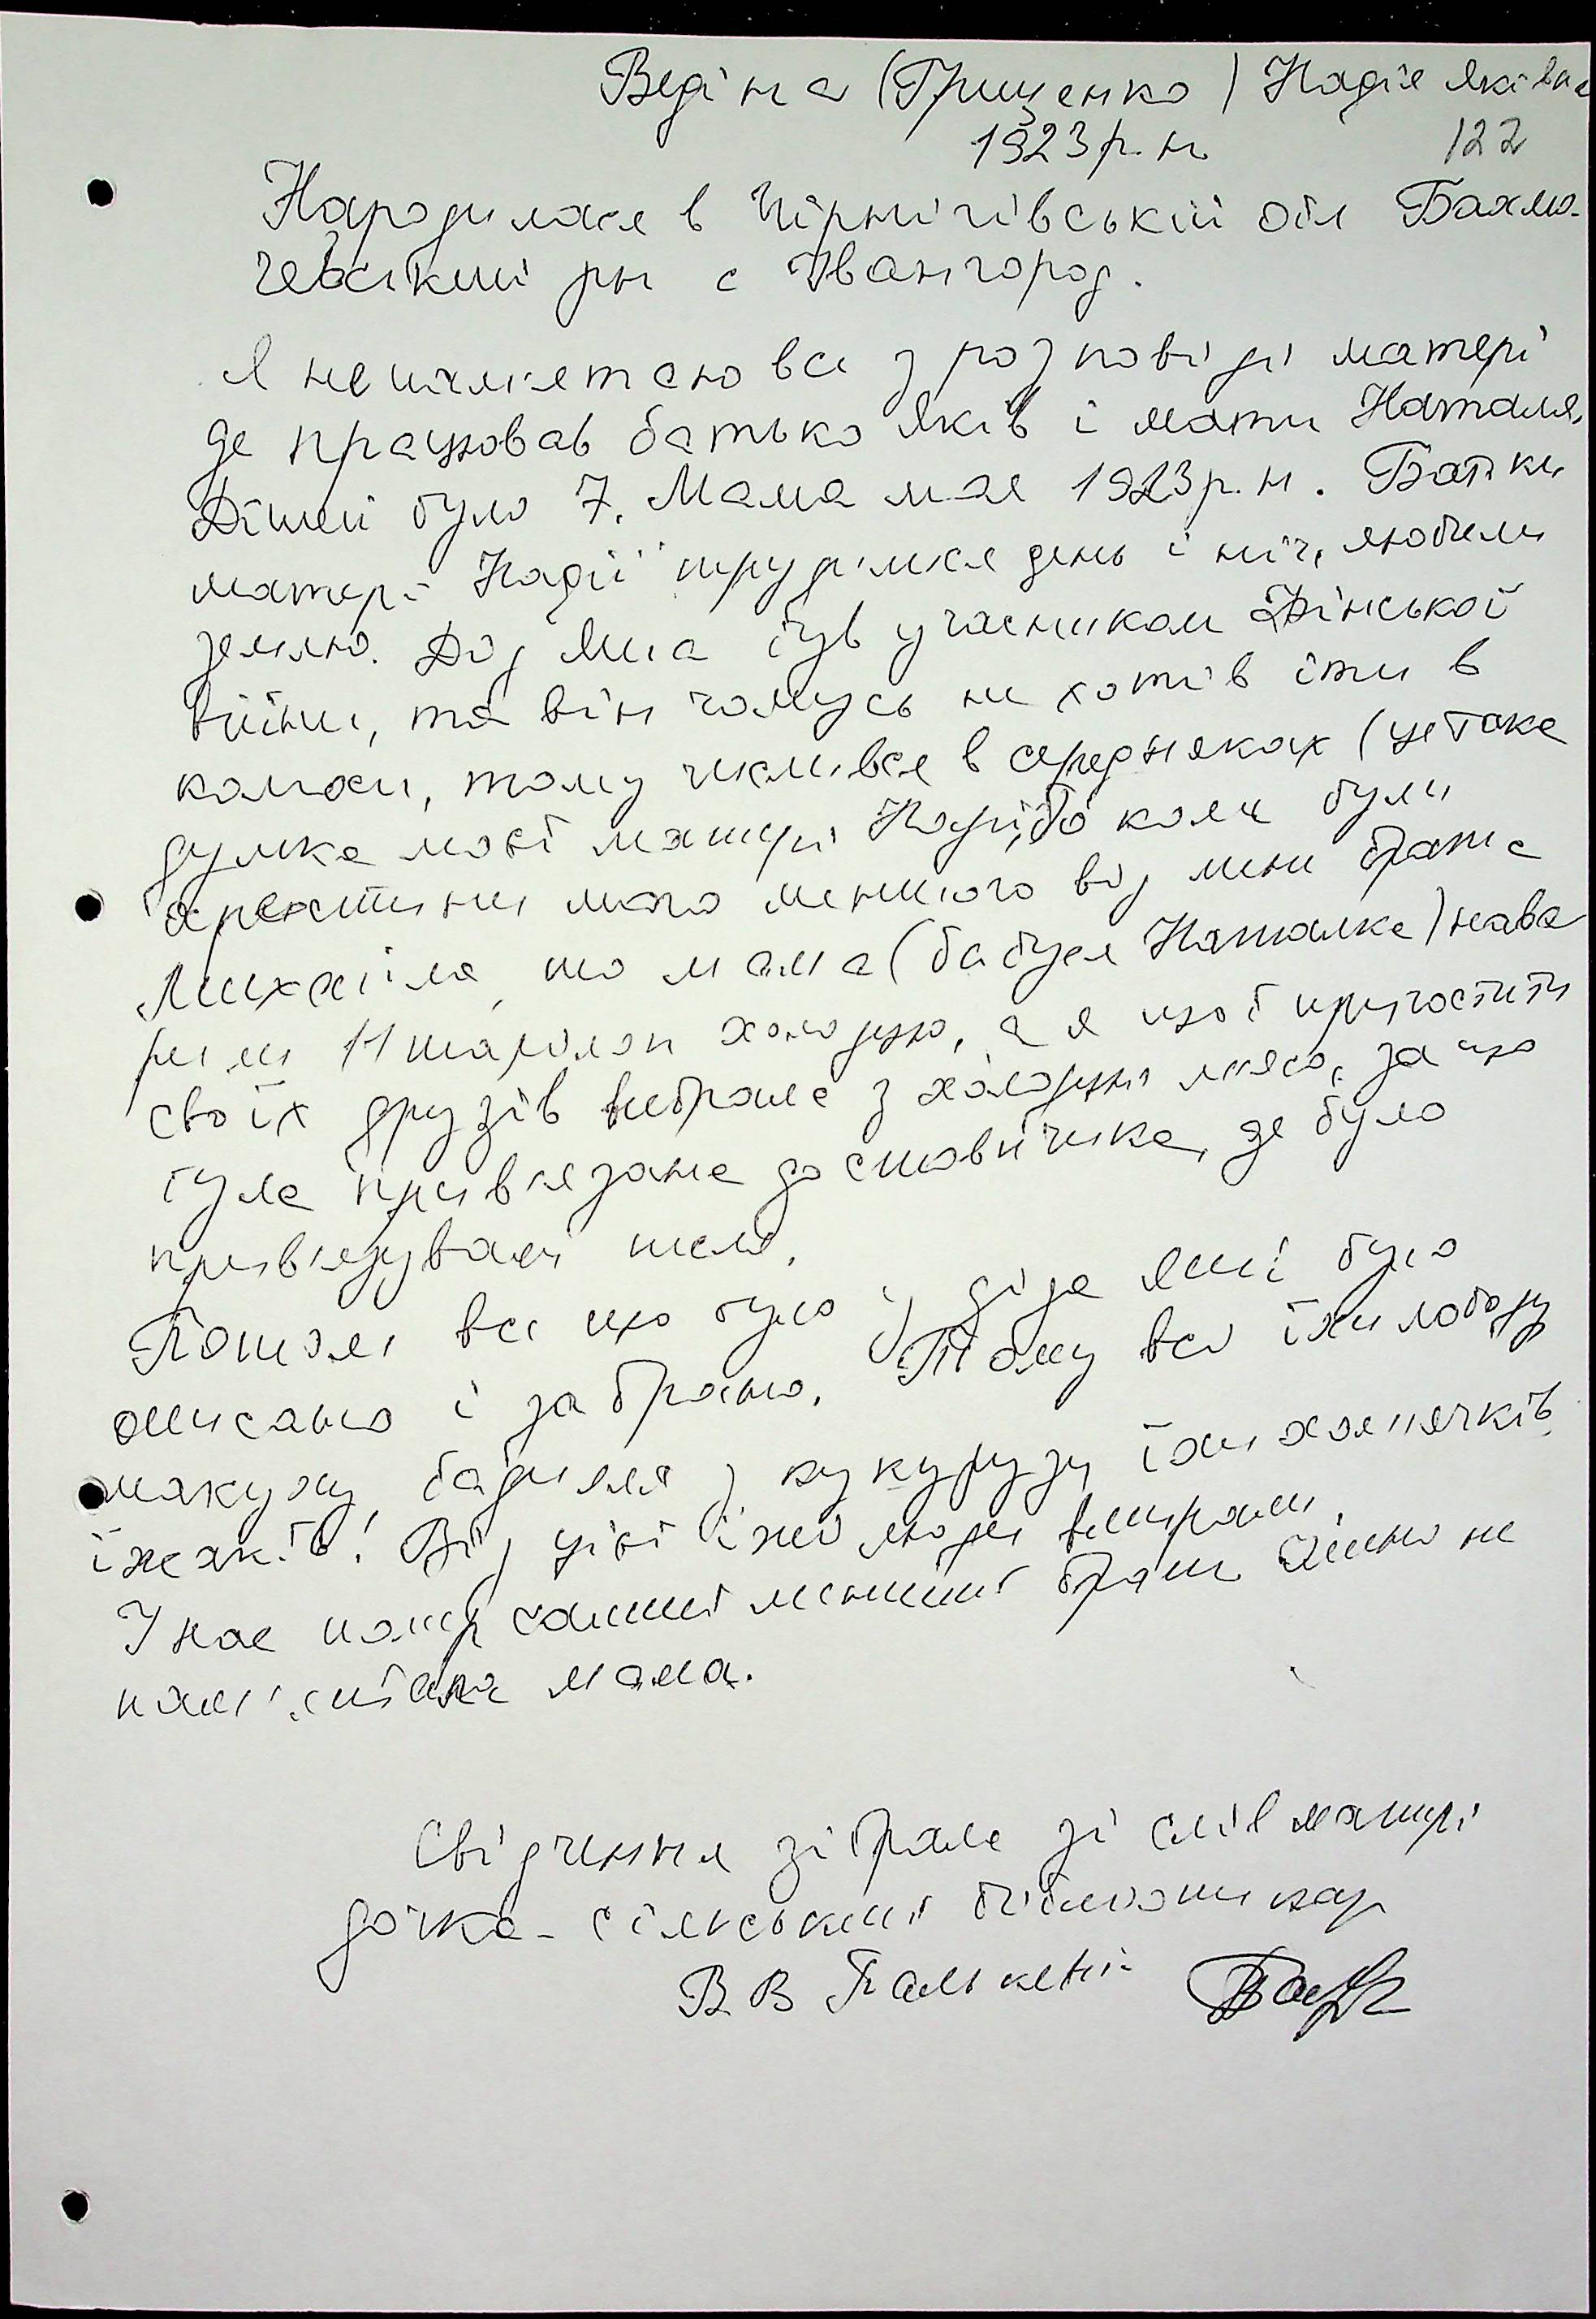 Ведіна (Грищенко) Надія Яківна
1923 р. н. 122
Народилася в Чірнігівській обл Бахма-
чевський рн с Івангород.
Я не памятаю все з розповіді матері
де працював батько Яків і мати Наталя.
Дітей було 7. Мама моя 1923 р. н. Батьки
матері Надії трудилися день і ніч, любили
землю. Дід був учасником Фінської
війни, та він чомусь не хотів іти в
колгосп, тому числився в середняках (це така
думка моєї матері Надії, бо коли були
хрестини мого меншого від мене брата
Михайла, то мама (бабуся Наталка) нава
рили 11 тарілок холодцю, а я щоб пригостити
своїх друзів вибрала з холодцю мясо, за що
була привязана до стовпчика, де було
привязували теля.
Потом все що було у діда Яші було
описано і забрано. Тому всі їли лободу
макуху, бадилля з кукурузи, їли хомячків,
їжаків! Від цієї їжі люди вмирали.
У нас помер самий менший брат імено не
памятала мама.
Свідчення зібрала зі слів матері
дочка - сільський бібліотекар
В В